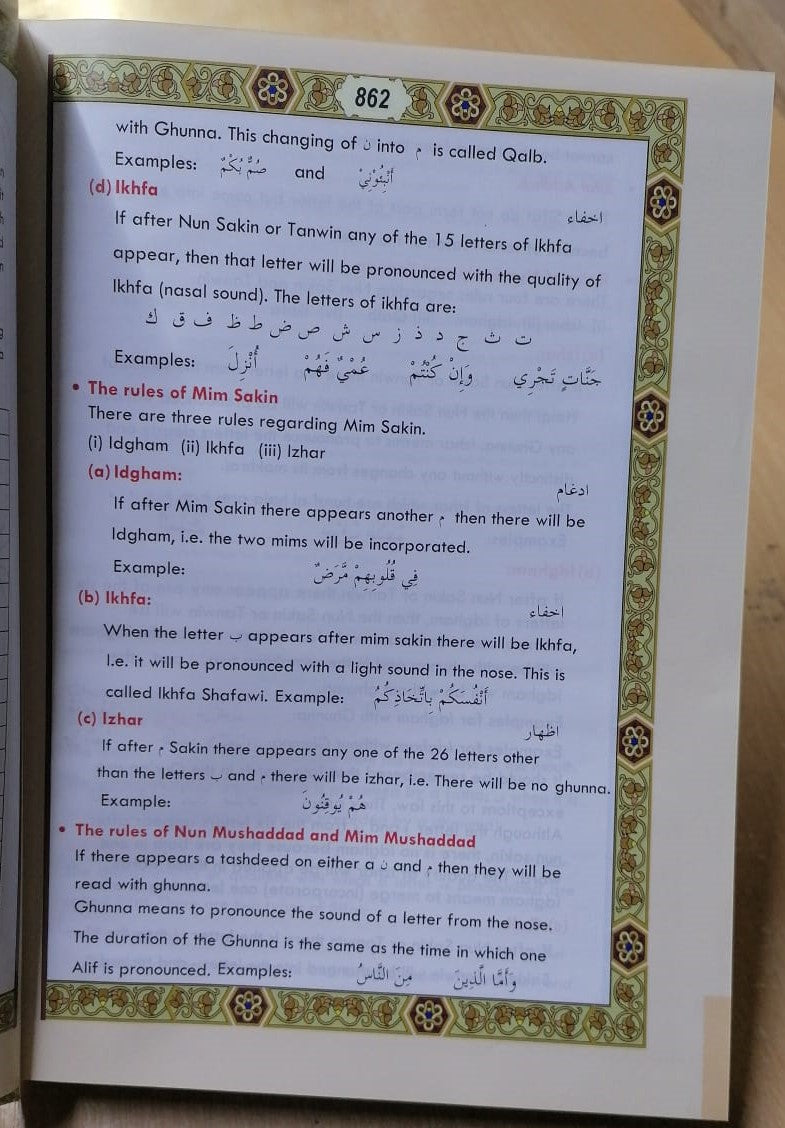 862
with Ghunna. This changing of ن into م is called Qalb.
Examples: صُمٌّ بُكْمٌ and أَنْبِئُوْنِيْ
(d) Ikhfa اخفاء
If after Nun Sakin or Tanwin any of the 15 letters of Ikhfa
appear, then that letter will be pronounced with the quality of
Ikhfa (nasal sound). The letters of ikhfa are:
ت ث ج د ذ ز س ش ص ض ط ظ ف ق ك
Examples: أُنْزِلَ عُمْيٌ فَهُمْ وَإِنْ كُنْتُمْ جَنَّاتٍ تَجْرِي
• The rules of Mim Sakin
There are three rules regarding Mim Sakin.
(i) Idgham (ii) Ikhfa (iii) Izhar
(a) Idgham: ادغام
If after Mim Sakin there appears another م then there will be
Idgham, i.e. the two mims will be incorporated.
Example: فِي قُلُوبِهِمْ مَّرَضٌ
(b) Ikhfa: اخفاء
When the letter ب appears after mim sakin there will be Ikhfa,
I.e. it will be pronounced with a light sound in the nose. This is
called Ikhfa Shafawi. Example: أَنْفُسَكُمْ بِاتِّخَاذِكُمُ
(c) Izhar اظهار
If after م Sakin there appears any one of the 26 letters other
than the letters ب and م there will be izhar, i.e. There will be no ghunna.
Example: هُمْ يُوقِنُونَ
• The rules of Nun Mushaddad and Mim Mushaddad
If there appears a tashdeed on either a ن and م then they will be
read with ghunna.
Ghunna means to pronounce the sound of a letter from the nose.
The duration of the Ghunna is the same as the time in which one
Alif is pronounced. Examples: مِنَ النَّاسُ وَأَمَّا الَّذِينَ